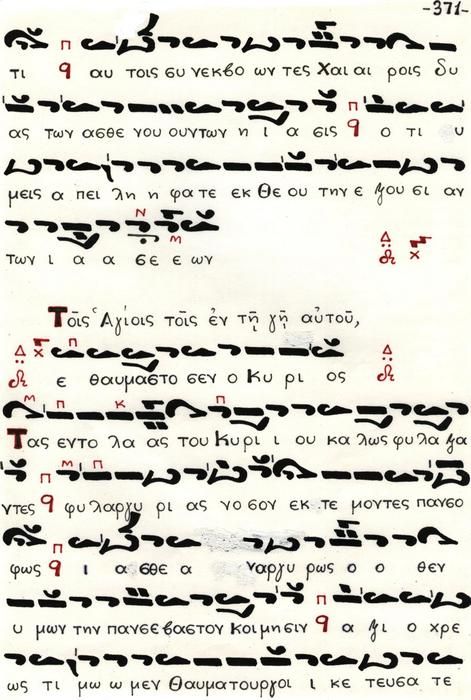 -371-
τι αυ τοις συ νεκβο ων τες Χαι αι ροις δυ
ας των ασθε νου ουντων η ι α σις ο τι υ
μεις α πει λη η φα τε εκ Θε ου την ε ξου σι αν
των ι α α σε ε ων
Τοῖς Ἁγίοις τοῖς ἐν τῇ γῇ αὐτοῦ,
ε θαυμαστο σεν ο Κυ ρι ος
Τας εντο λα ας του Κυρι ι ου κα λως φυ λα ξα
ντες φυ λαργυ ρι ας νο σον εκ τε μοντες πανσο
φως ι α σθε α ναργυ ρως ο ο θεν
υ μων την πανσε βαστον Κοι μη σιν α ξι ο χρε
ως τι μω ω μεν Θαυματουργοι ι κε τευσα τε